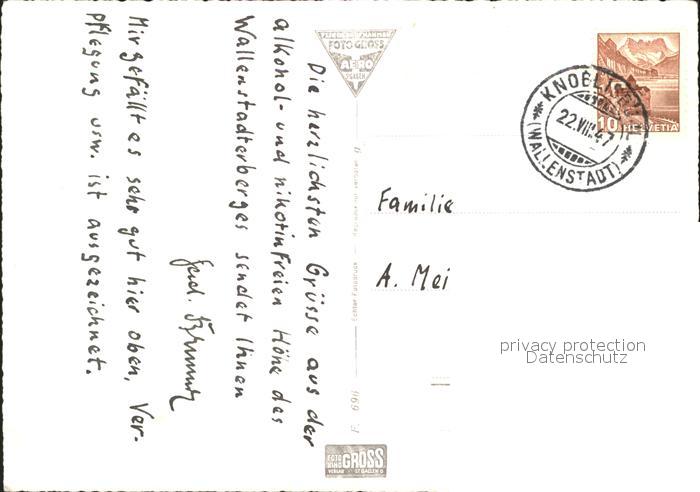 Die herzlichsten Grüsse aus der
alkohol- und nikotinfreien Höhe des
Wallenstadterberges sendet Ihnen
Mir gefällt es sehr gut hier oben, Ver-
pflegung usw. ist ausgezeichnet.
FOTO-GROSS
AERO
ST.GALLEN
KNOBELSBÜHL
22.VIII.47
(WALLENSTADT)
10 HELVETIA
Familie
A. Mei
privacy protection
Datenschutz
F. 969
FOTO
GROSS
VERLAG ST GALLEN